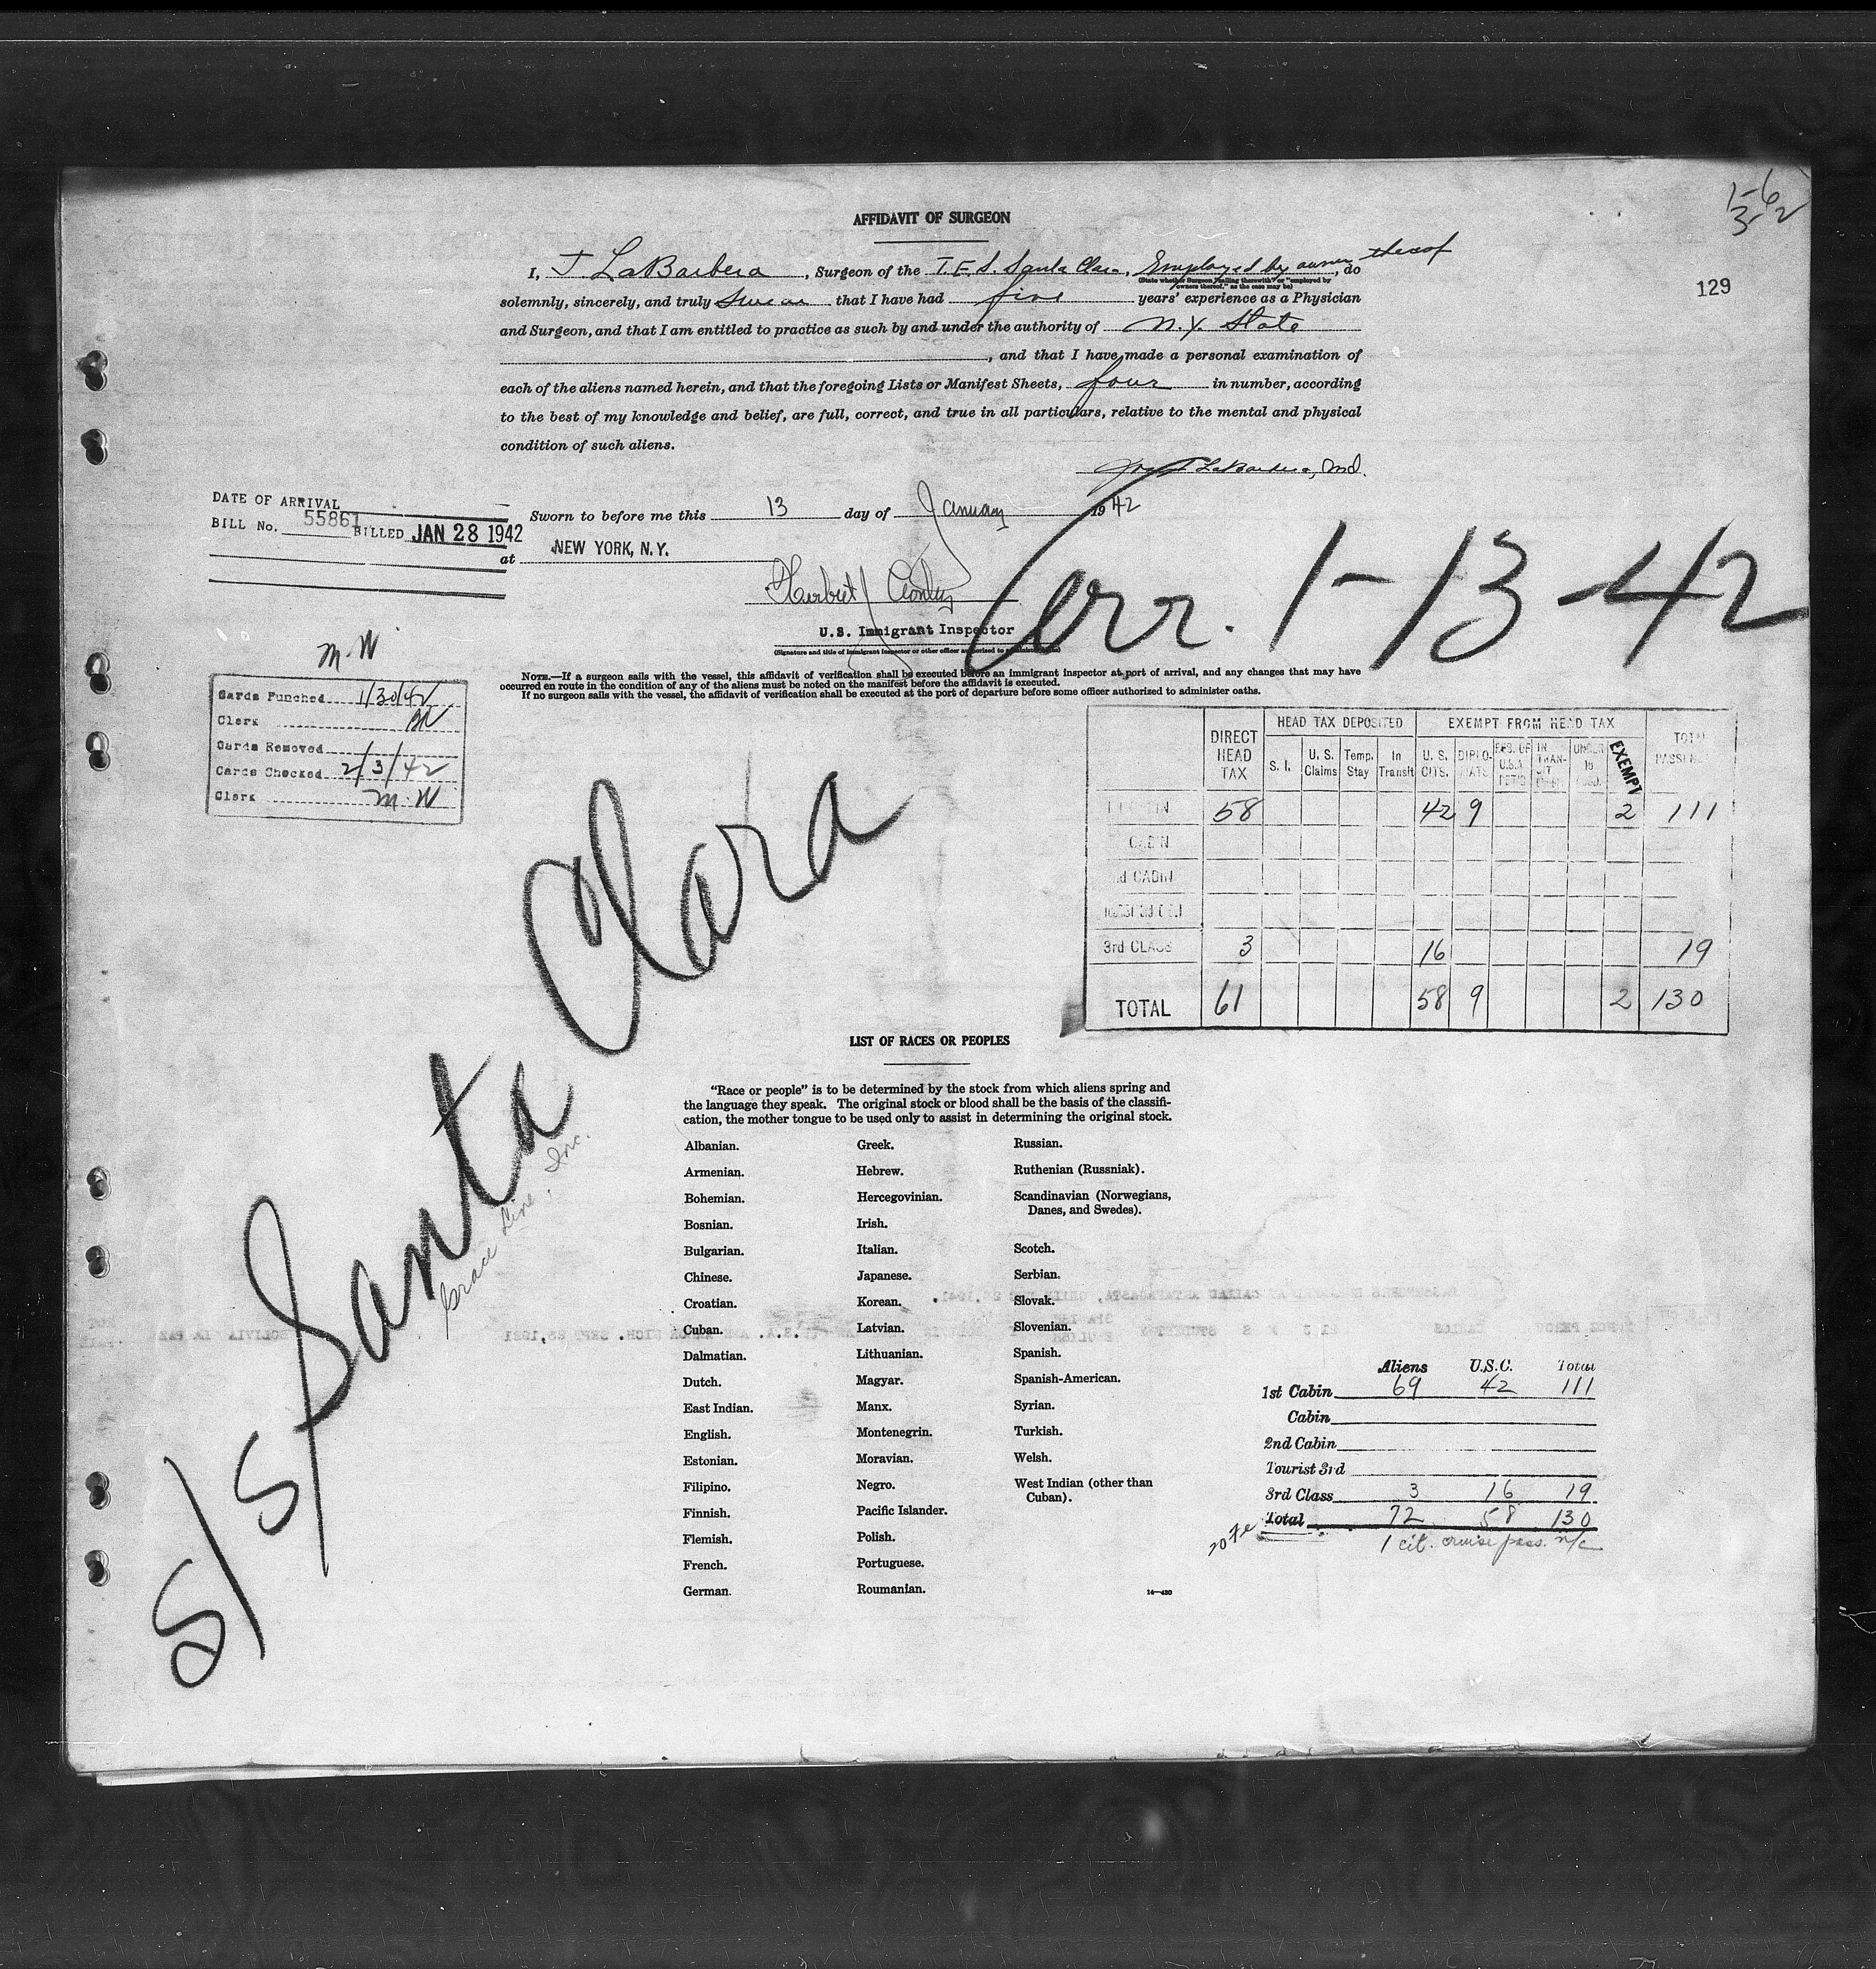 1-6
3 2
129
AFFIDAVIT OF SURGEON
I, J LaBarbera, Surgeon of the T.E.S. Santa Clara, Employed by owner thereof, do
(State whether "Surgeon sailing therewith" or "employed by owners thereof," as the case may be)
solemnly, sincerely, and truly swear that I have had five years' experience as a Physician
and Surgeon, and that I am entitled to practice as such by and under the authority of N.Y. State
, and that I have made a personal examination of
each of the aliens named herein, and that the foregoing Lists or Manifest Sheets, four in number, according
to the best of my knowledge and belief, are full, correct, and true in all particulars, relative to the mental and physical
condition of such aliens.
LaBarbera, M.D.
DATE OF ARRIVAL
BILL No. 55861 BILLED JAN 28 1942
Sworn to before me this 13 day of January 1942
at NEW YORK, N.Y.
Herbert J
U.S. Immigrant Inspector
(Signature and title of immigrant inspector or other officer authorized to administer oaths)
Arr. 1-13-42
NOTE.—If a surgeon sails with the vessel, this affidavit of verification shall be executed before an immigrant inspector at port of arrival, and any changes that may have
occurred en route in the condition of any of the aliens must be noted on the manifest before the affidavit is executed.
If no surgeon sails with the vessel, the affidavit of verification shall be executed at the port of departure before some officer authorized to administer oaths.
M.W
Cards Punched 1/30/42
Clerk
Cards Removed
Cards Checked 2/3/42
Clerk M.W
DIRECT HEAD TAX
HEAD TAX DEPOSITED
S. I. U. S. Claims Temp. Stay In Transit
EXEMPT FROM HEAD TAX
U. S. CITS. DIPLOMATS IN TRANSIT UNDER 16 EXEMPT
TOTAL PASSENG
CABIN 58 42 9 2 111
CABIN
2nd CABIN
3rd CLASS 3 16 19
TOTAL 61 58 9 2 130
S/S Santa Clara
Grace Line, Inc.
LIST OF RACES OR PEOPLES
"Race or people" is to be determined by the stock from which aliens spring and
the language they speak. The original stock or blood shall be the basis of the classifi-
cation, the mother tongue to be used only to assist in determining the original stock.
Albanian.
Armenian.
Bohemian.
Bosnian.
Bulgarian.
Chinese.
Croatian.
Cuban.
Dalmatian.
Dutch.
East Indian.
English.
Estonian.
Filipino.
Finnish.
Flemish.
French.
German.
Greek.
Hebrew.
Hercegovinian.
Irish.
Italian.
Japanese.
Korean.
Latvian.
Lithuanian.
Magyar.
Manx.
Montenegrin.
Moravian.
Negro.
Pacific Islander.
Polish.
Portuguese.
Roumanian.
Russian.
Ruthenian (Russniak).
Scandinavian (Norwegians,
Danes, and Swedes).
Scotch.
Serbian.
Slovak.
Slovenian.
Spanish.
Spanish-American.
Syrian.
Turkish.
Welsh.
West Indian (other than
Cuban).
Aliens U.S.C. Total
1st Cabin 69 42 111
Cabin
2nd Cabin
Tourist 3rd
3rd Class 3 16 19
Total 72 58 130
note 1 cit. cruise pass. n/c